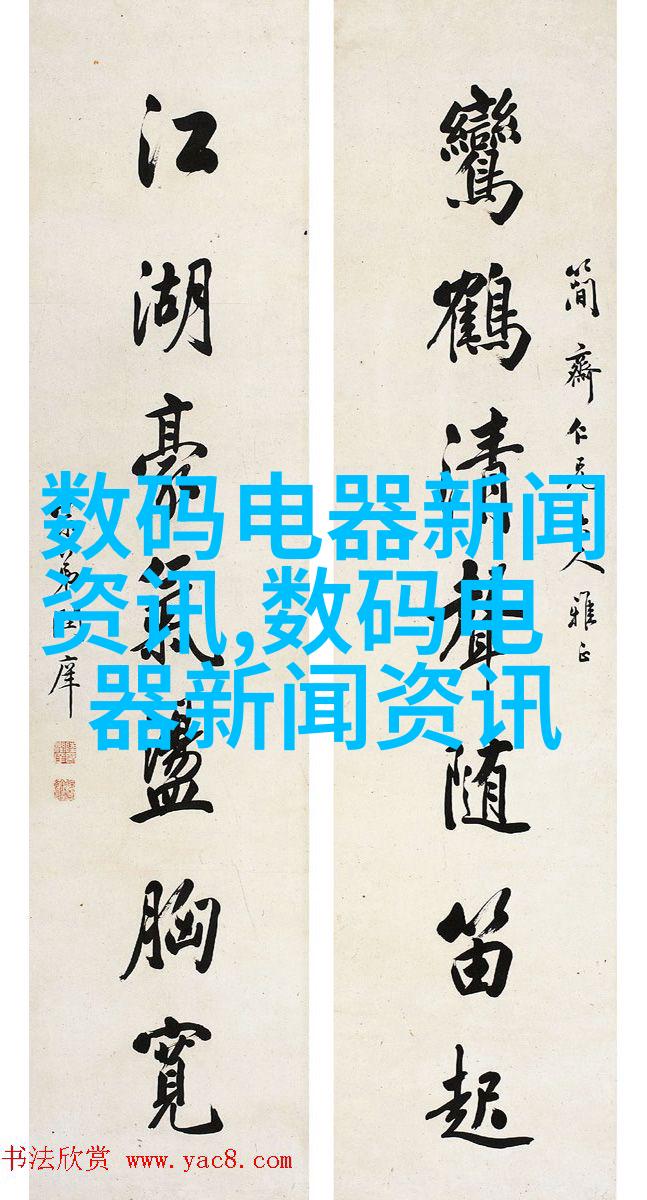 簡齋仁兄大人雅正
鸞鶴清聲随笛起
江湖豪氣盪胸寬
庠
数码电器新闻
资讯,数码电
器新闻资讯
书法欣赏 www.yac8.com